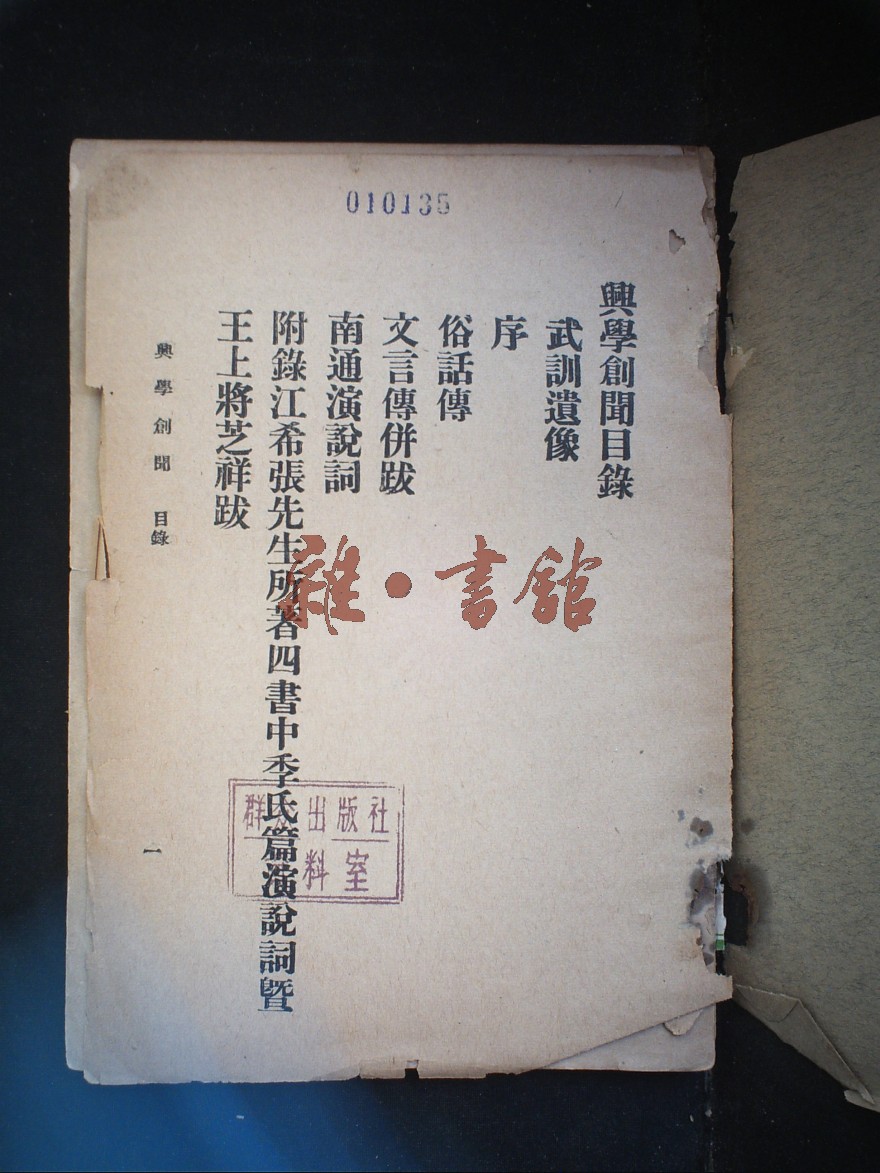 010135
興學創聞目錄
武訓遺像
序
俗話傳
文言傳併跋
南通演說詞
附錄江希張先生所著四書中季氏篇演說詞暨
王上將芝祥跋
興學創聞 目錄
一
雜·書館
群 出版社
料室